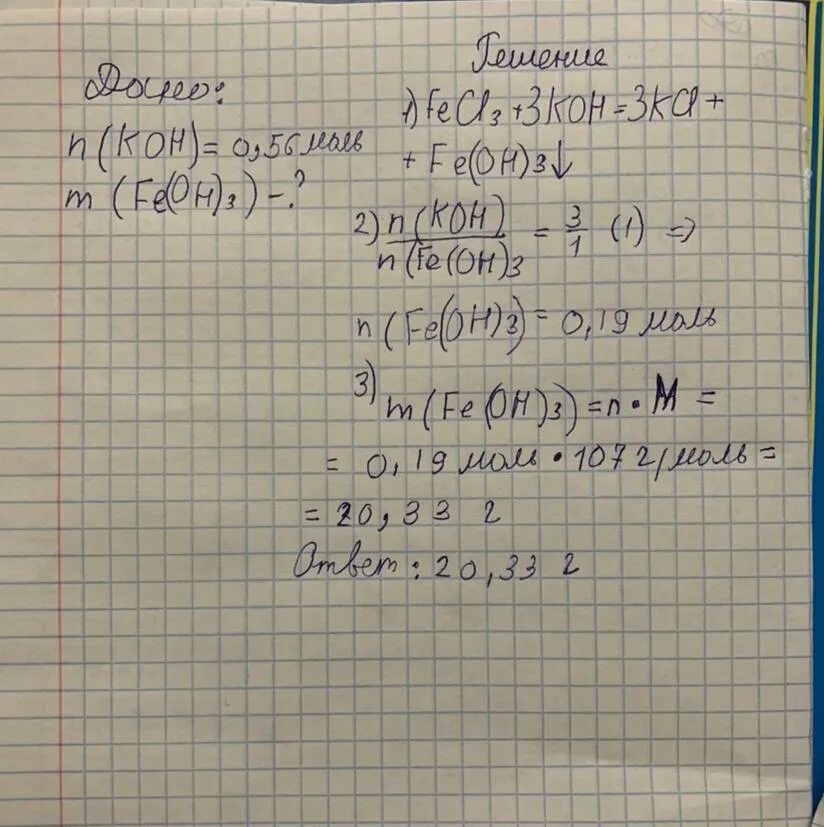 Дано:
n(KOH) = 0,56 моль
m (Fe(OH)₃) - ?
Решение
1) FeCl₃ + 3KOH = 3KCl +
+ Fe(OH)₃↓
2) n(KOH) / n(Fe(OH)₃ = 3/1 (1) =>
n (Fe(OH)₃) = 0,19 моль
3)
m (Fe(OH)₃) = n • M =
= 0,19 моль • 107 г/моль =
= 20,33 г
Ответ: 20,33 г